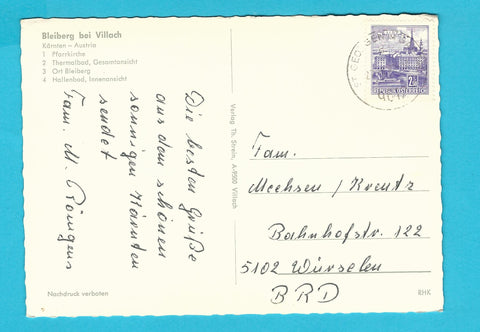 Bleiberg bei Villach
Kärnten – Austria
1 Pfarrkirche
2 Thermalbad, Gesamtansicht
3 Ort Bleiberg
4 Hallenbad, Innenansicht
Die besten Grüße
aus dem schönen
sonnigen Kärnten
sendet
Fam. M. Röntgens
Nachdruck verboten
Verlag Th. Strein, A-9500 Villach
ST. GEO
REPUBLIK ÖSTERREICH
Fam.
Meehsen / Kreutz
Bahnhofstr. 122
5102 Würselen
BRD
RHK